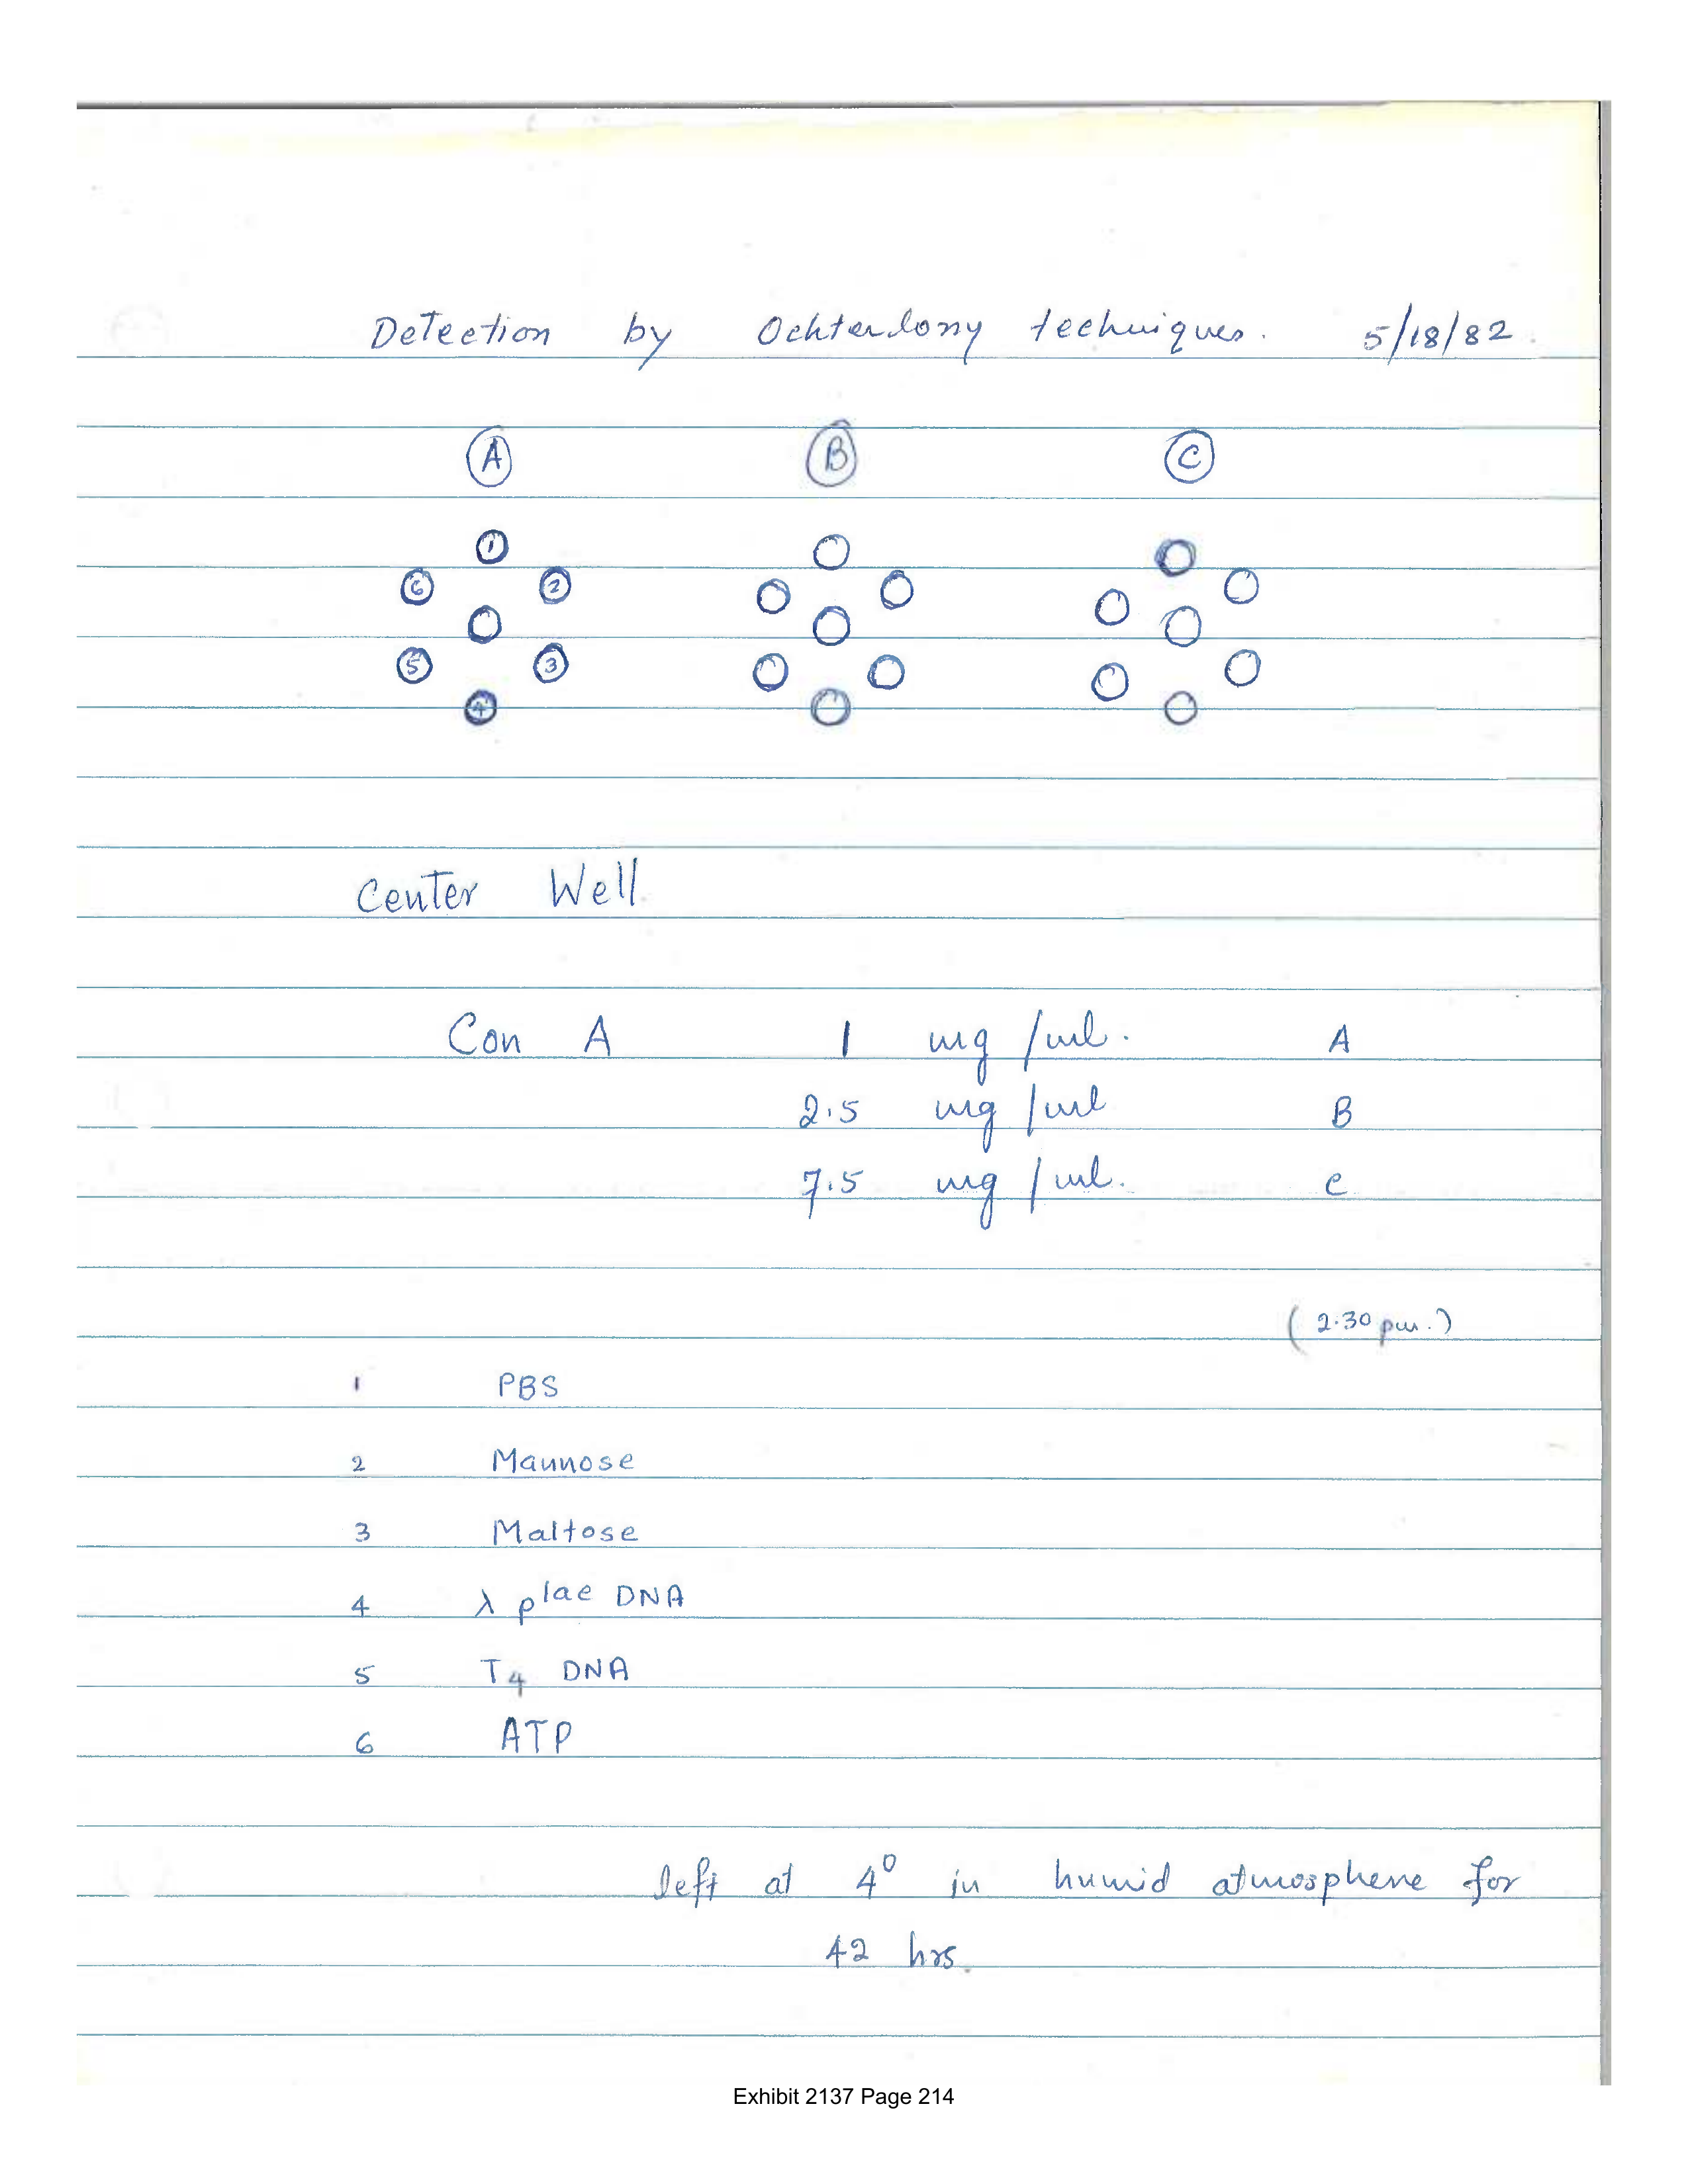 Detection by Ochterlony techniques. 5/18/82.
A B C
1
6 2
5 3
4
Center Well
Con A 1 mg/ml. A
2.5 mg/ml B
7.5 mg/ml. C
(2.30 pm.)
1 PBS
2 Mannose
3 Maltose
4 λ plac DNA
5 T4 DNA
6 ATP
left at 4° in humid atmosphere for
42 hrs.
Exhibit 2137 Page 214